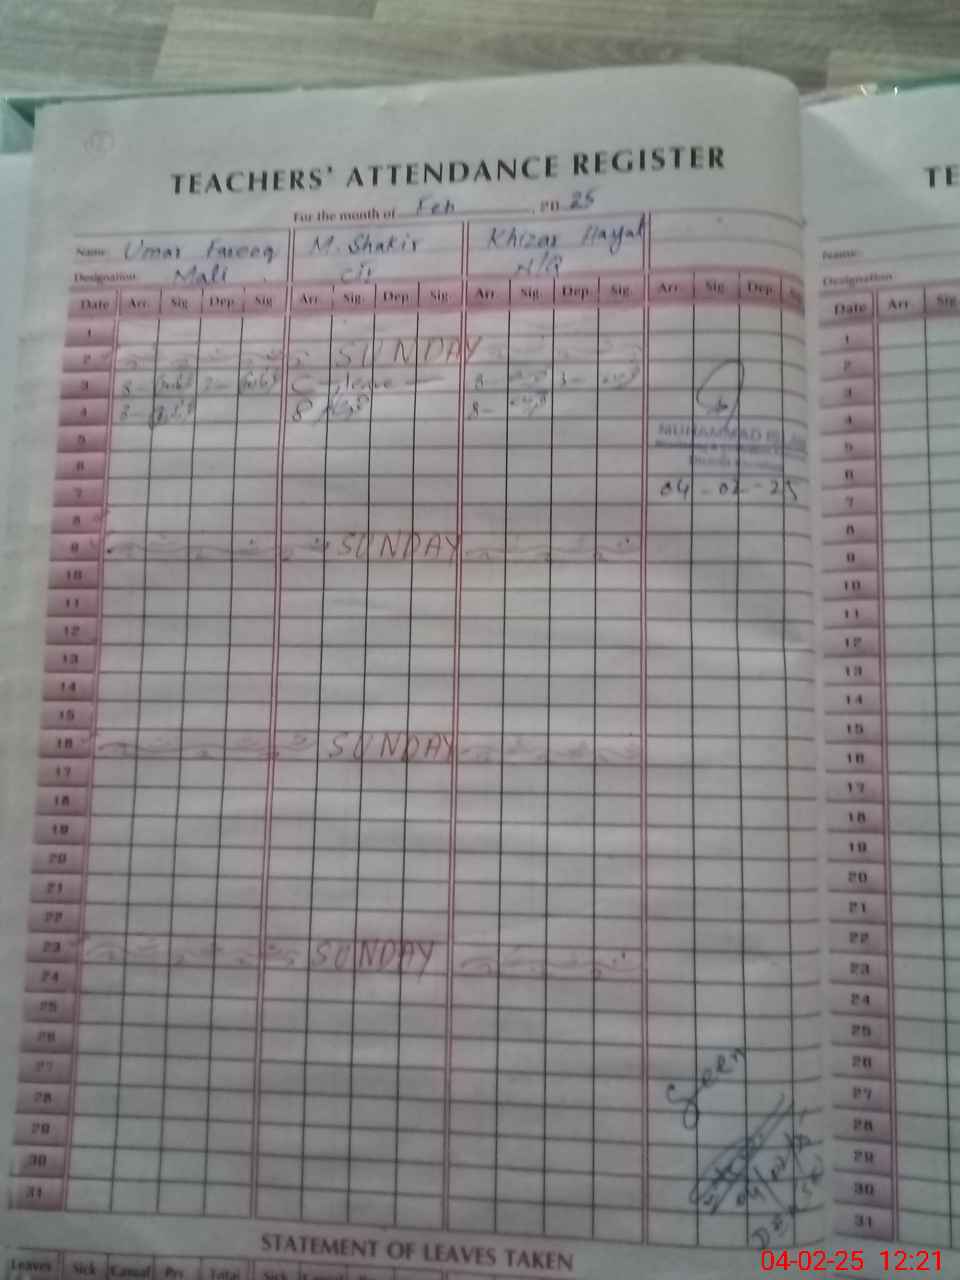 TEACHERS' ATTENDANCE REGISTER
For the month of Feb, 2025
Name: Umar Farooq M. Shakir Khizar Hayat
Designation: Mali C/r N/Q
Date Arr. Sig. Dep. Sig. Arr. Sig. Dep. Sig. Arr. Sig. Dep. Sig. Arr. Sig. Dep. Sig.
1
2 SUNDAY
3 8- 2- C-leave 8- 3-
4 8- 8 8-
5 MUHAMMAD
6
7 04-02-25
8
9 SUNDAY
10
11
12
13
14
15
16 SUNDAY
17
18
19
20
21
22
23 SUNDAY
24
25
26
27
28 Seen
29
30
31
STATEMENT OF LEAVES TAKEN
Leaves Sick Casual Prv. Total Sick Casual
TE
Name:
Designation:
Date Arr. Sig.
1
2
3
4
5
6
7
8
9
10
11
12
13
14
15
16
17
18
19
20
21
22
23
24
25
26
27
28
29
30
31
04-02-25 12:21